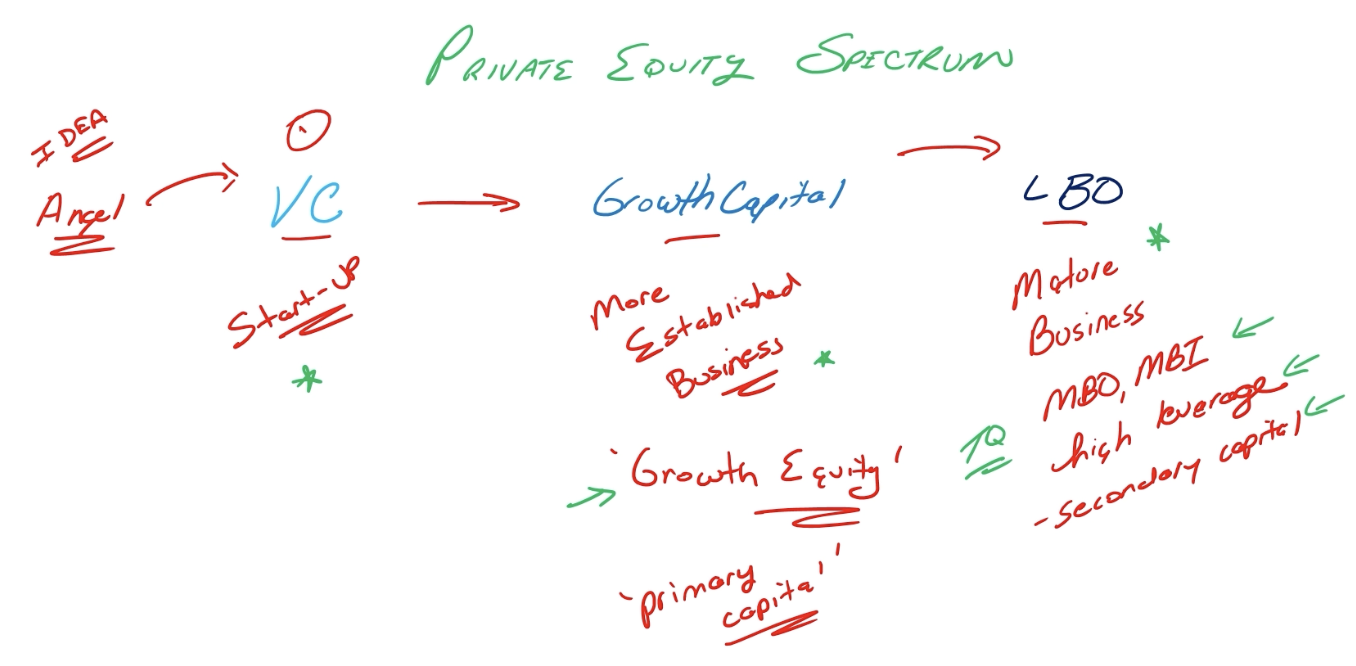 PRIVATE EQUITY SPECTRUM
IDEA
Angel
VC
Start-UP
Growth Capital
More
Established
Business
'Growth Equity'
'primary
capital'
LBO
Mature
Business
MBO, MBI
high leverage
-secondary capital